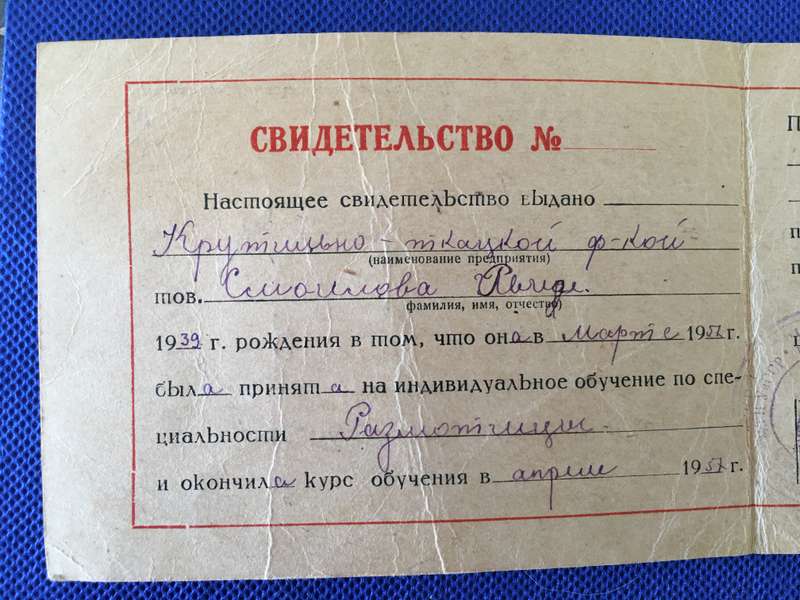 СВИДЕТЕЛЬСТВО №
Настоящее свидетельство выдано
Крутильно-ткацкой ф-кой
(наименование предприятия)
тов.
фамилия, имя, отчество)
1939 г. рождения в том, что она в Марте 1957 г.
была принята на индивидуальное обучение по спе-
циальности Размотчицы
и окончила курс обучения в апреле 1957 г.